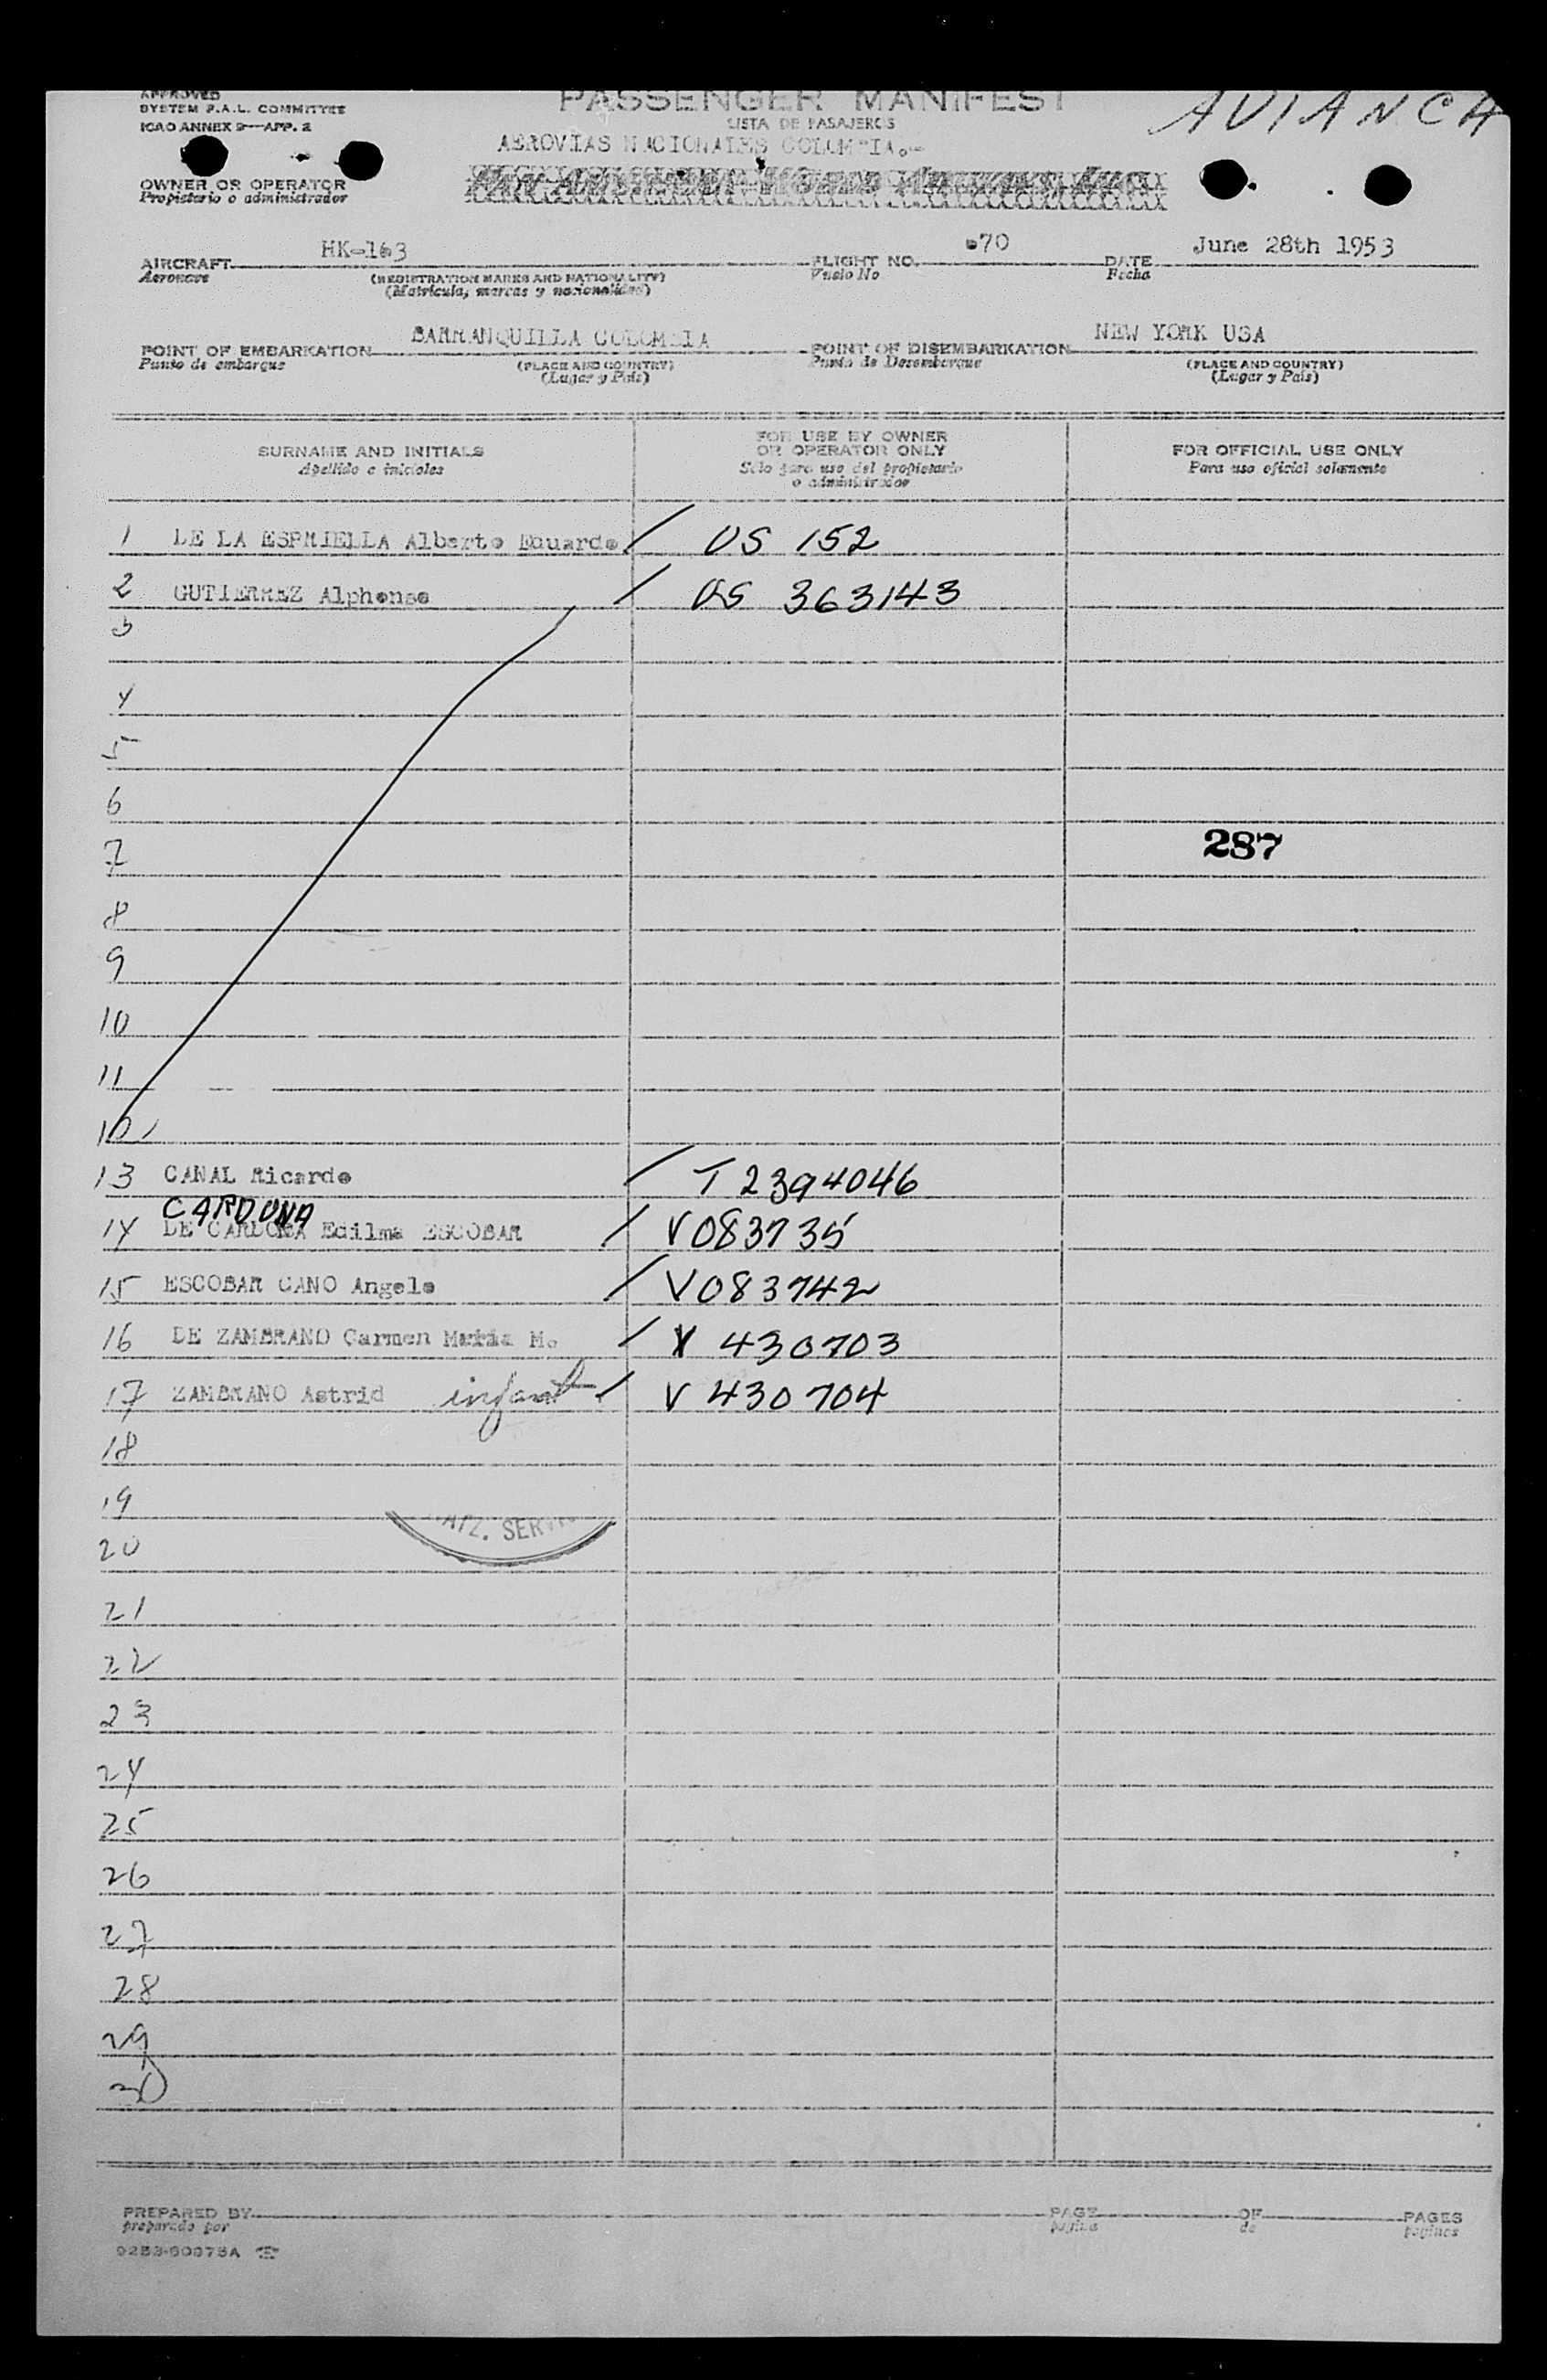 APPROVED
SYSTEM F.A.L. COMMITTEE
ICAO ANNEX 9—APP. 2
PASSENGER MANIFEST
LISTA DE PASAJEROS
AVIANCA
AEROVIAS NACIONALES COLOMBIA.-
OWNER OR OPERATOR
Propietario o administrador
AIRCRAFT HK-163 FLIGHT NO. 670 DATE June 28th 1953
Aeronave (REGISTRATION MARKS AND NATIONALITY) Vuelo No Fecha
(Matrícula, marcas y nacionalidad)
POINT OF EMBARKATION BARRANQUILLA COLOMBIA POINT OF DISEMBARKATION NEW YORK USA
Punto de embarque (PLACE AND COUNTRY) Punto de Desembarque (PLACE AND COUNTRY)
(Lugar y País) (Lugar y País)
SURNAME AND INITIALS FOR USE BY OWNER OR OPERATOR ONLY FOR OFFICIAL USE ONLY
Apellido e iniciales Sólo para uso del propietario o administrador Para uso oficial solamente
1 DE LA ESPRIELLA Alberto Eduardo / US 152
2 GUTIERREZ Alphonso / US 363143
3
4
5
6
7 287
8
9
10
11
12
13 CANAL Ricardo / T 2394046
CARDONA
14 DE CARDONA Edilma ESCOBAR / V083735
15 ESCOBAR CANO Angela / V083742
16 DE ZAMBRANO Carmen Maria M. / V 430703
17 ZAMBRANO Astrid infant / V 430704
18
19
NATZ. SERVICE
20
21
22
23
24
25
26
27
28
29
30
PREPARED BY PAGE OF PAGES
preparado por página de páginas